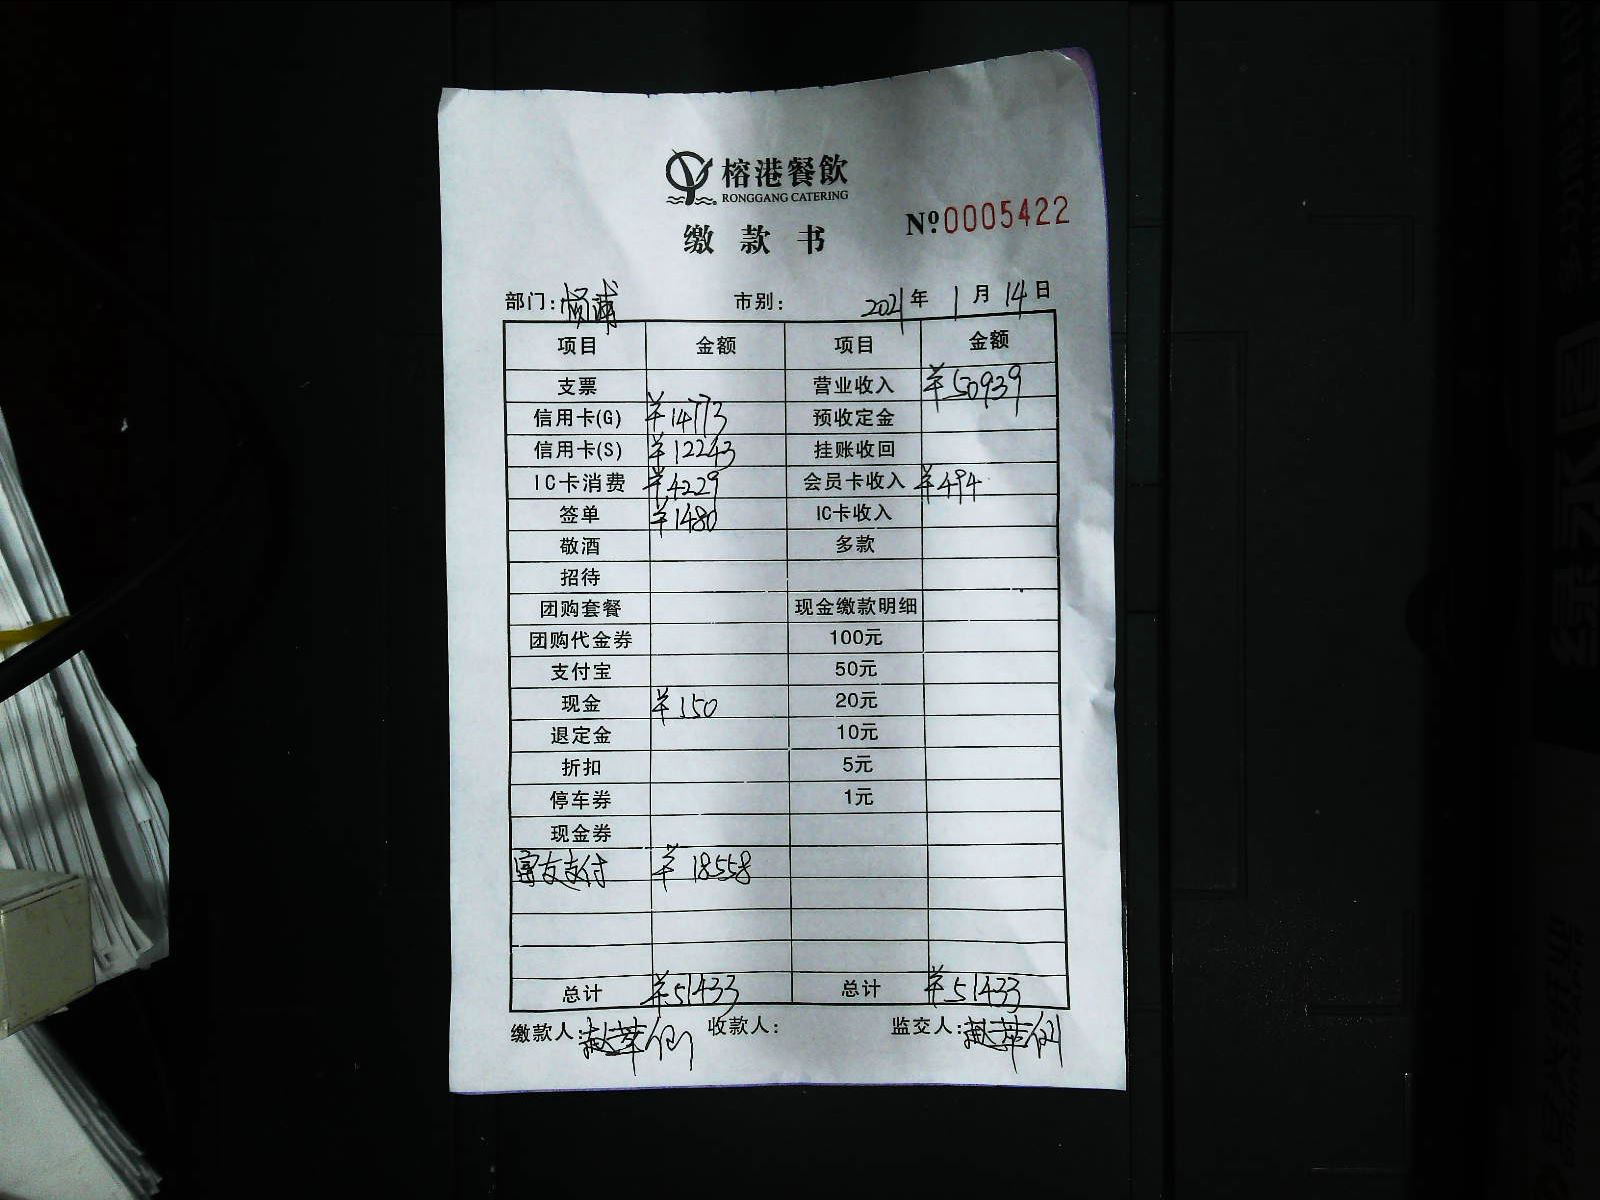 榕港餐飲
RONGGANG CATERING
缴款书 Nº 0005422
部门: 市别: 2021年1月14日
项目 金额 项目 金额
支票 营业收入 ¥50939
信用卡(G) ¥14773 预收定金
信用卡(S) ¥12243 挂账收回
IC卡消费 ¥4229 会员卡收入 ¥494
签单 ¥1480 IC卡收入
敬酒 多款
招待
团购套餐 现金缴款明细
团购代金券 100元
支付宝 50元
现金 ¥150 20元
退定金 10元
折扣 5元
停车券 1元
现金券
富友支付 ¥18558
总计 ¥51433 总计 ¥51433
缴款人: 收款人: 监交人: